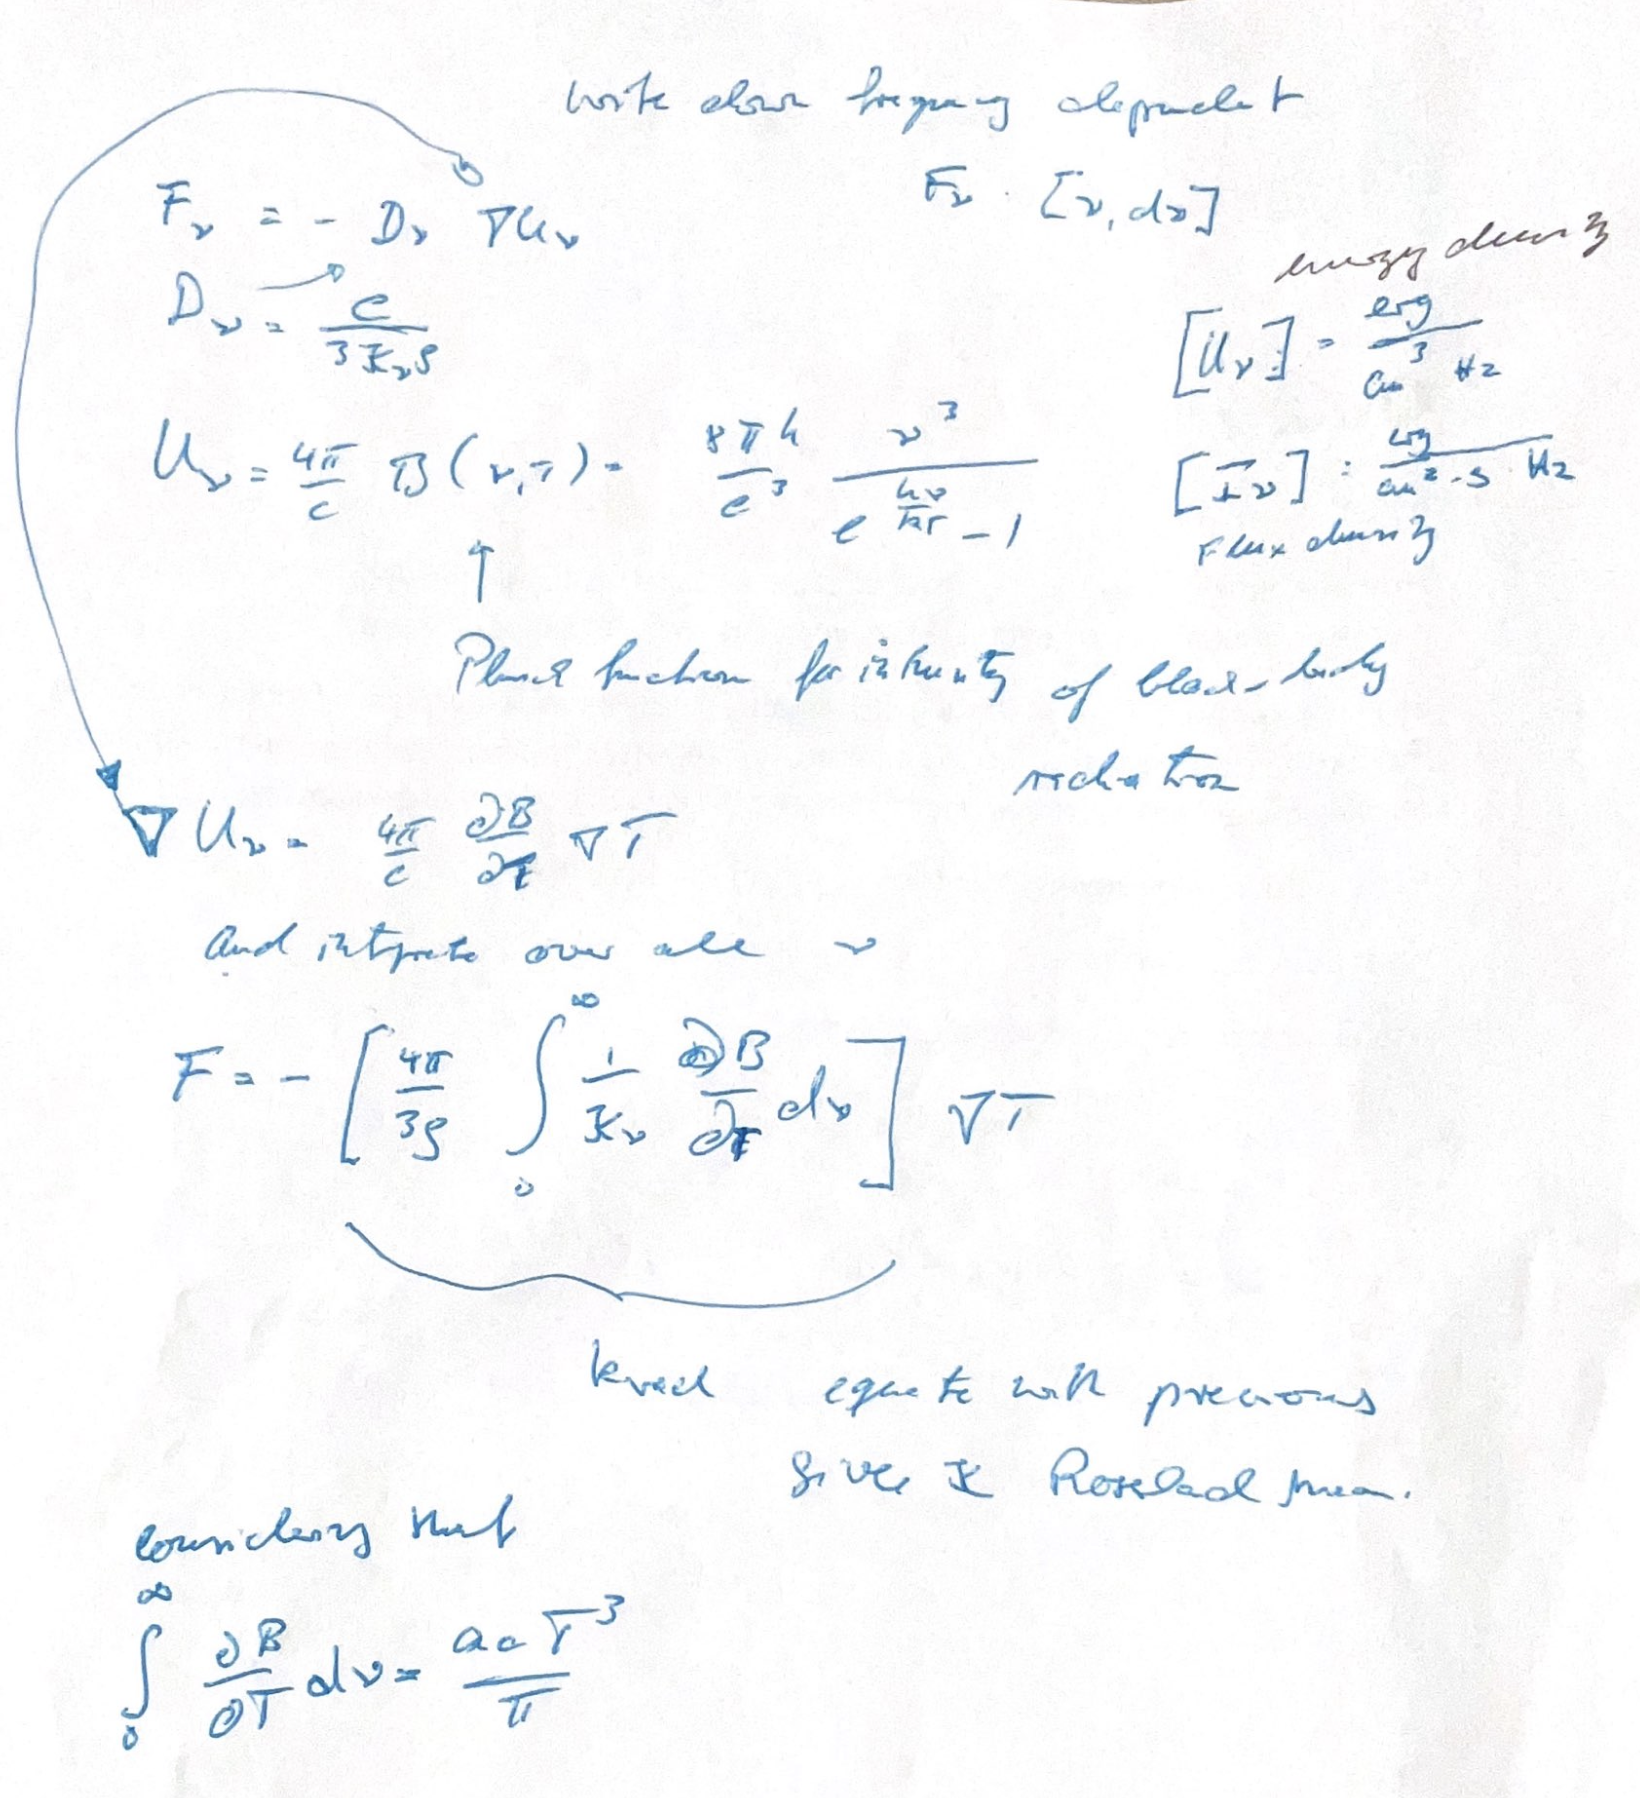 write down frequency dependent
F_ν . [ν, dν]
F_ν = - D_ν ∇U_ν
energy density
D_ν = c / (3 κ_ν ρ)
[U_ν] = erg / (cm^3 Hz)
U_ν = 4π/c B(ν,T) = 8πh/c^3 ν^3 / (e^(hν/kT) - 1)
[I_ν] : erg / (cm^2 · s Hz)
Flux density
↑
Planck function for intensity of black-body
radiation
∇U_ν = 4π/c ∂B/∂T ∇T
and integrate over all ν
F = - [ 4π/3ρ ∫_0^∞ 1/κ_ν ∂B/∂T dν ] ∇T
krad equate with previous
gives κ Rosseland mean.
considering that
∫_0^∞ ∂B/∂T dν = acT^3/π